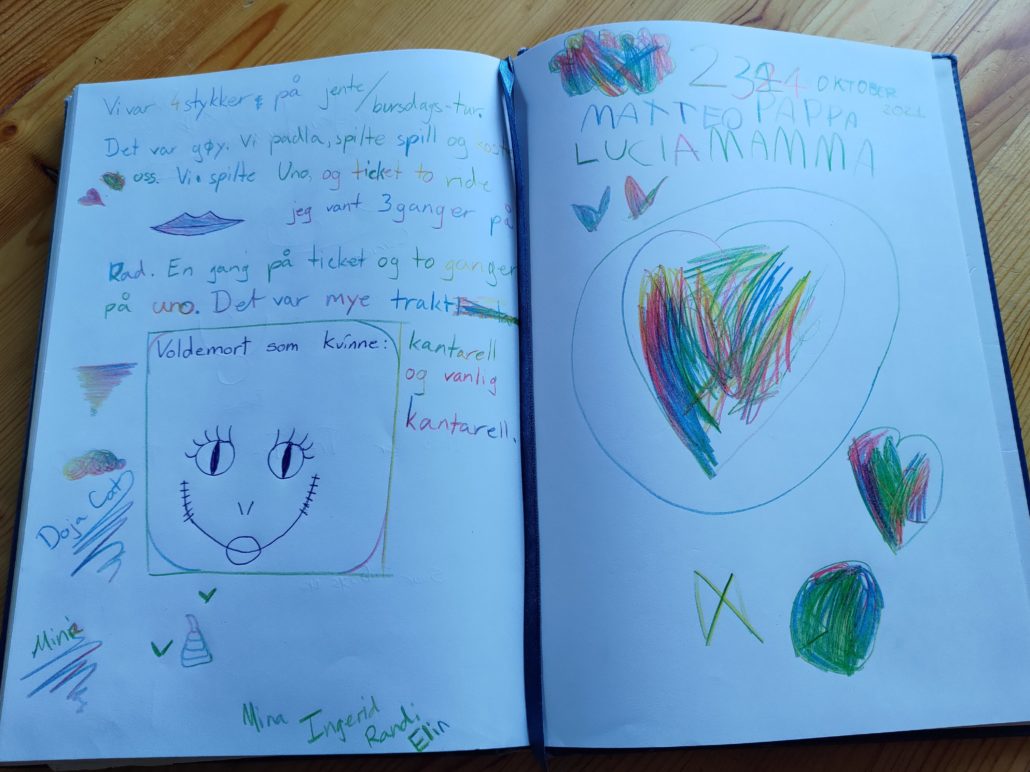 Vi var 4 stykker på jente/bursdags-tur.
Det var gøy. Vi padla, spilte spill og
oss. Vi spilte Uno, og ticket to ride
jeg vant 3 ganger på
Rad. En gang på ticket og to ganger
på uno. Det var mye trakt
kantarell
og vanlig
kantarell.
Voldemort som kvinne:
Doja Cat
Mina
Mina Ingerid
Randi
Elin
OKTOBER
2021
MATTEO PAPPA
LUCIA MAMMA